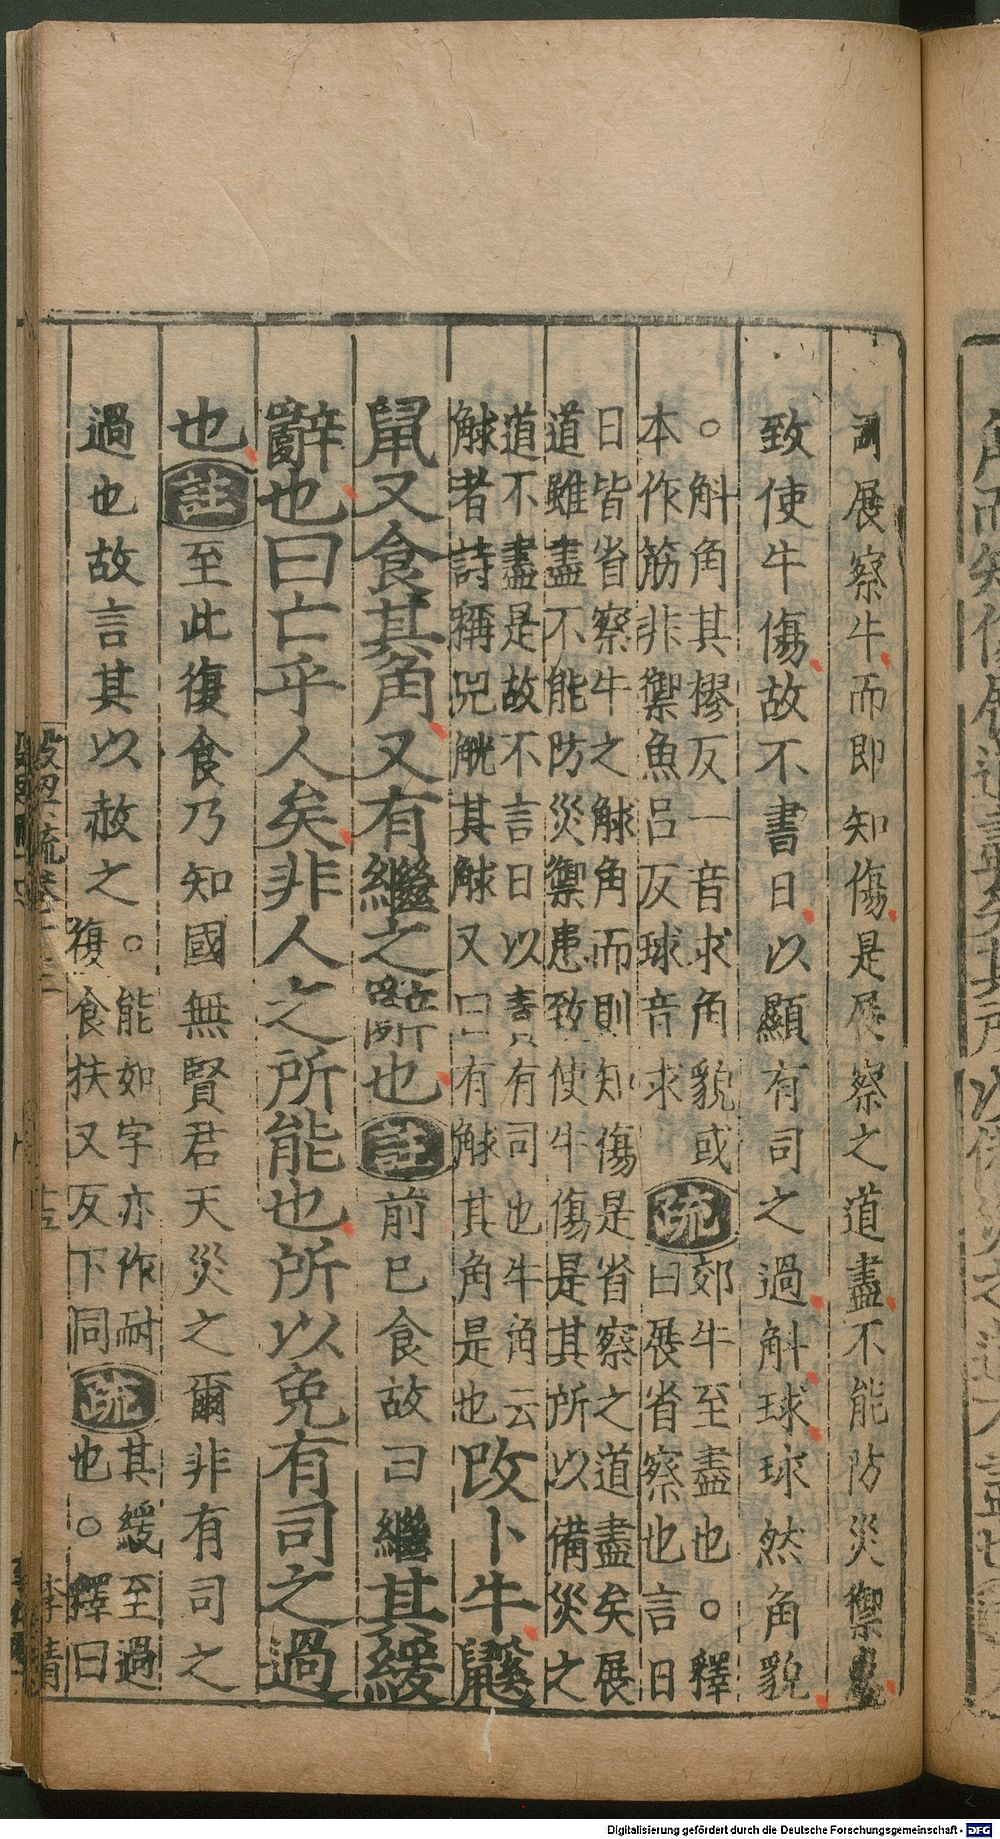 司展察牛而即知傷是展察之道盡不能防災禦患
致使牛傷故不書日以顯有司之過斛球球然角貌
。斛角其樛反一音求角貌或
本作筋非禦魚呂反球音求
疏
郊牛至盡也。釋
曰展省察也言日
日皆省察牛之觩角而則知傷是省察之道盡矣展
道雖盡不能防災禦患致使牛傷是其所以備災之
道不盡是故不言日以責有司也牛角云
觩者詩稱兕觥其觩又曰有觩其角是也
改卜牛鼷
鼠又食其角又有繼之辭也
註
前已食故曰繼
其緩
辭也曰亡乎人矣非人之所能也所以免有司之過
也
註
至此復食乃知國無賢君天災之爾非有司之
過也故言其以赦之
。能如字亦作耐
復食扶又反下同
疏
其緩至過
也。釋曰
Digitalisierung gefördert durch die Deutsche Forschungsgemeinschaft - DFG